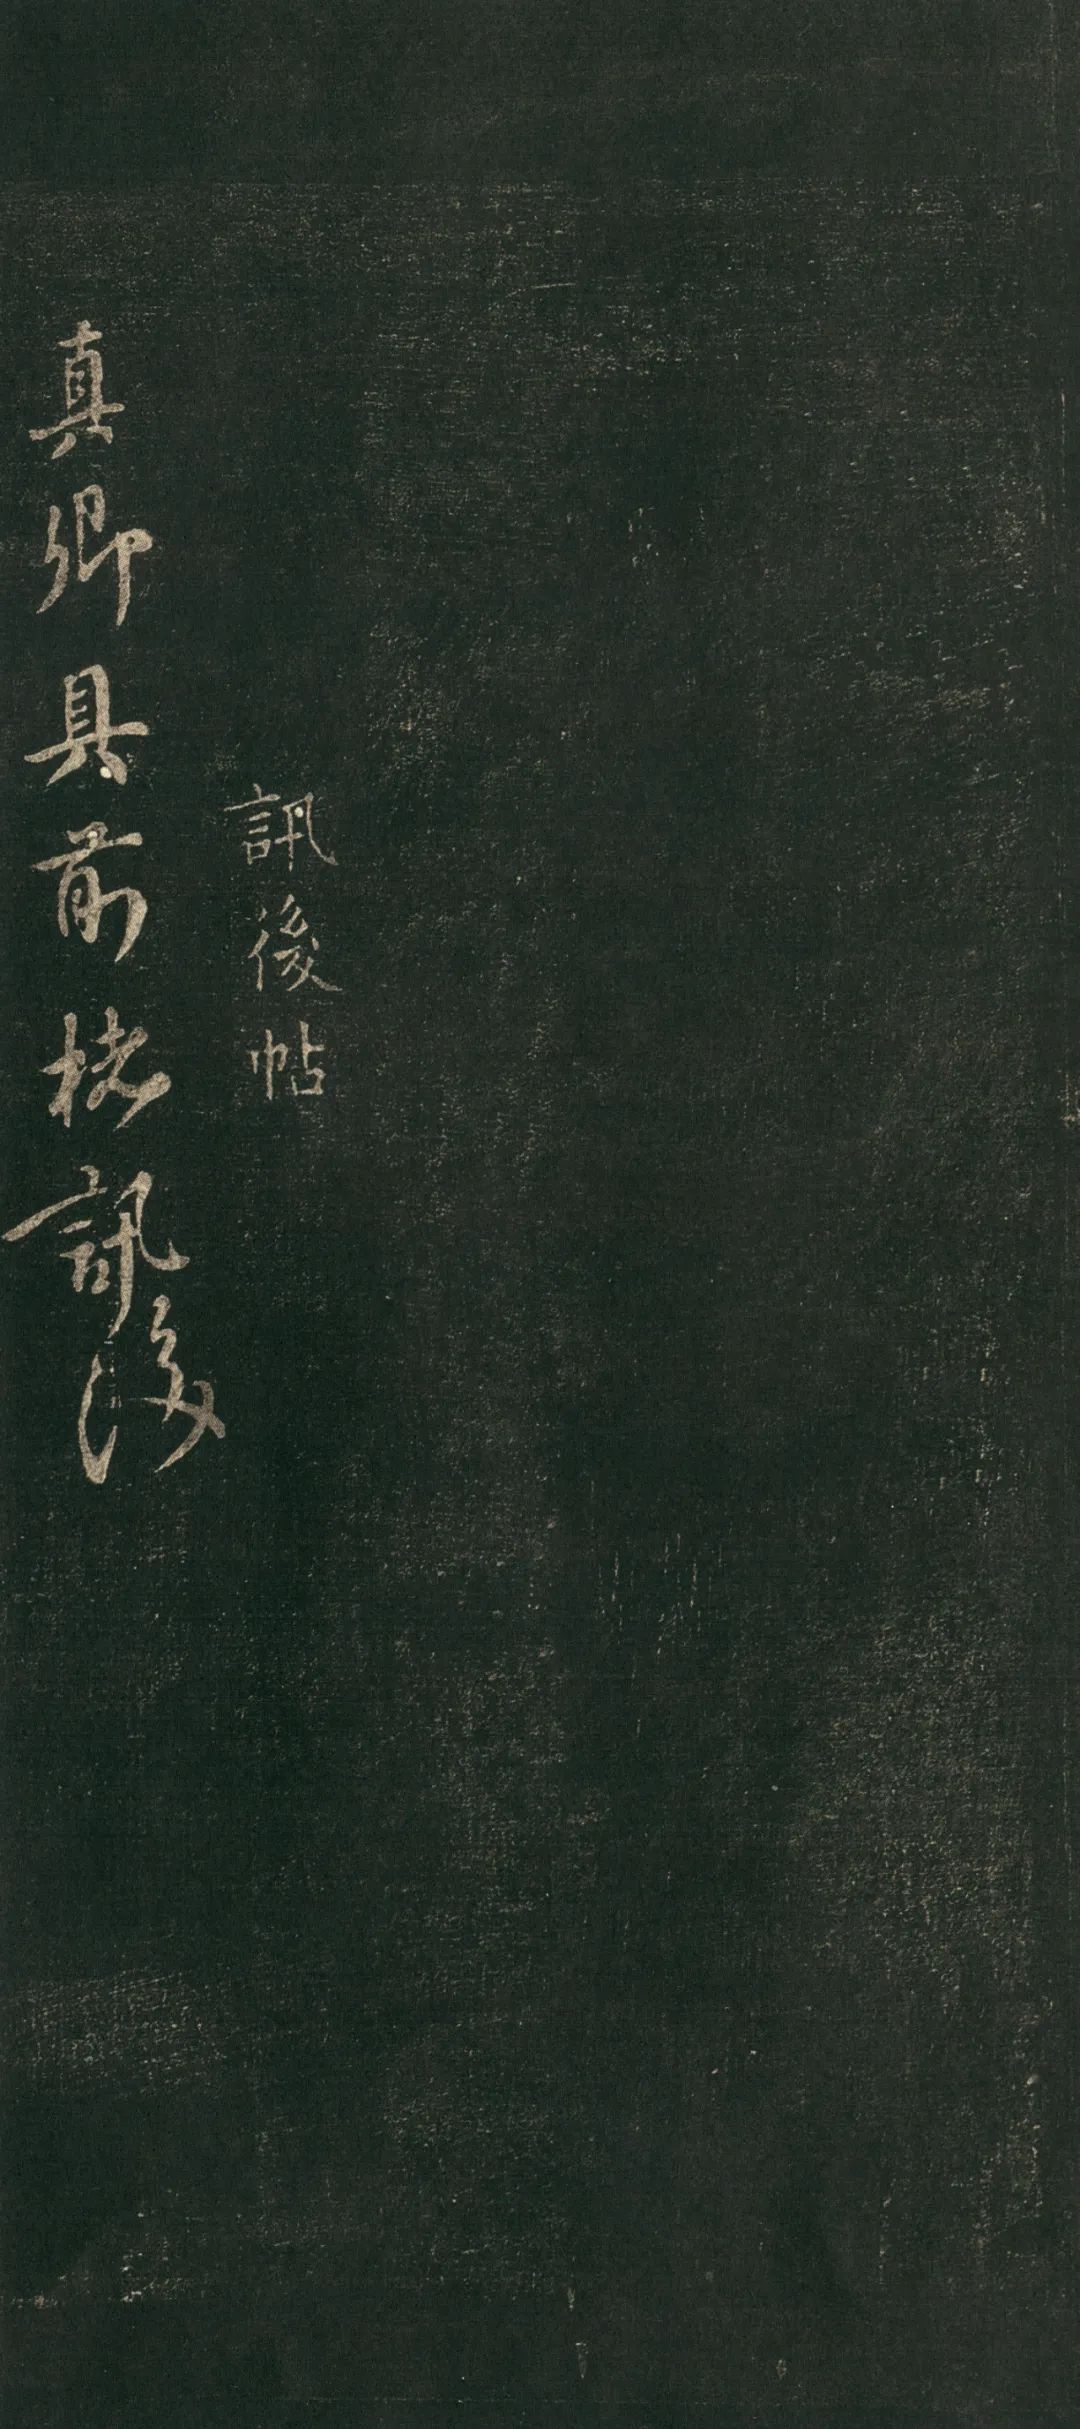 訊後帖
真卿具前楼訊後